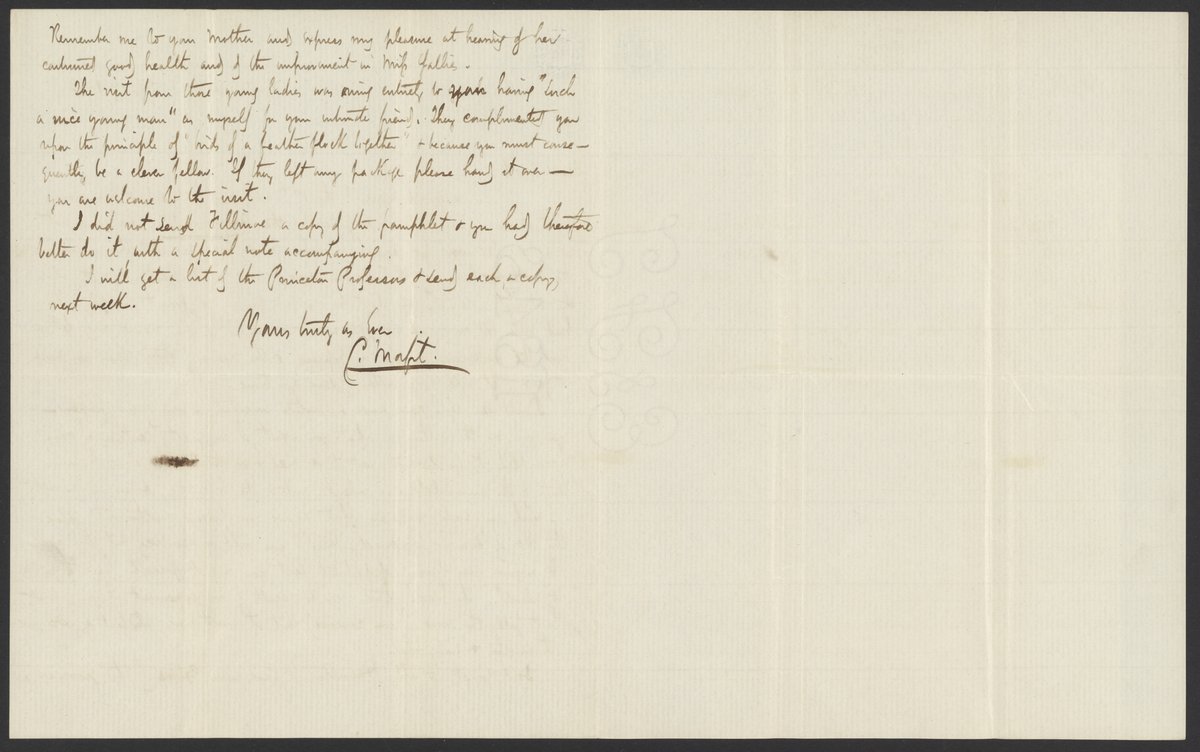 Remember me to your Mother and express my pleasure at hearing of her
continued good health and of the improvement in Miss Sallie.
The visit from those young ladies was owing entirely to your having "such
a nice young man" as myself for your intimate friend. They complimented you
upon the principle of "birds of a feather flock together" & because you must conse-
quently be a clever fellow. If they left any package please hand it over —
you are welcome to the visit.
I did not send Fillmore a copy of the pamphlet & you had therefore
better do it with a special note accompanying.
I will get a list of the Princeton Professors & send each a copy,
next week.
Yours truly as Ever
C. Morfit.